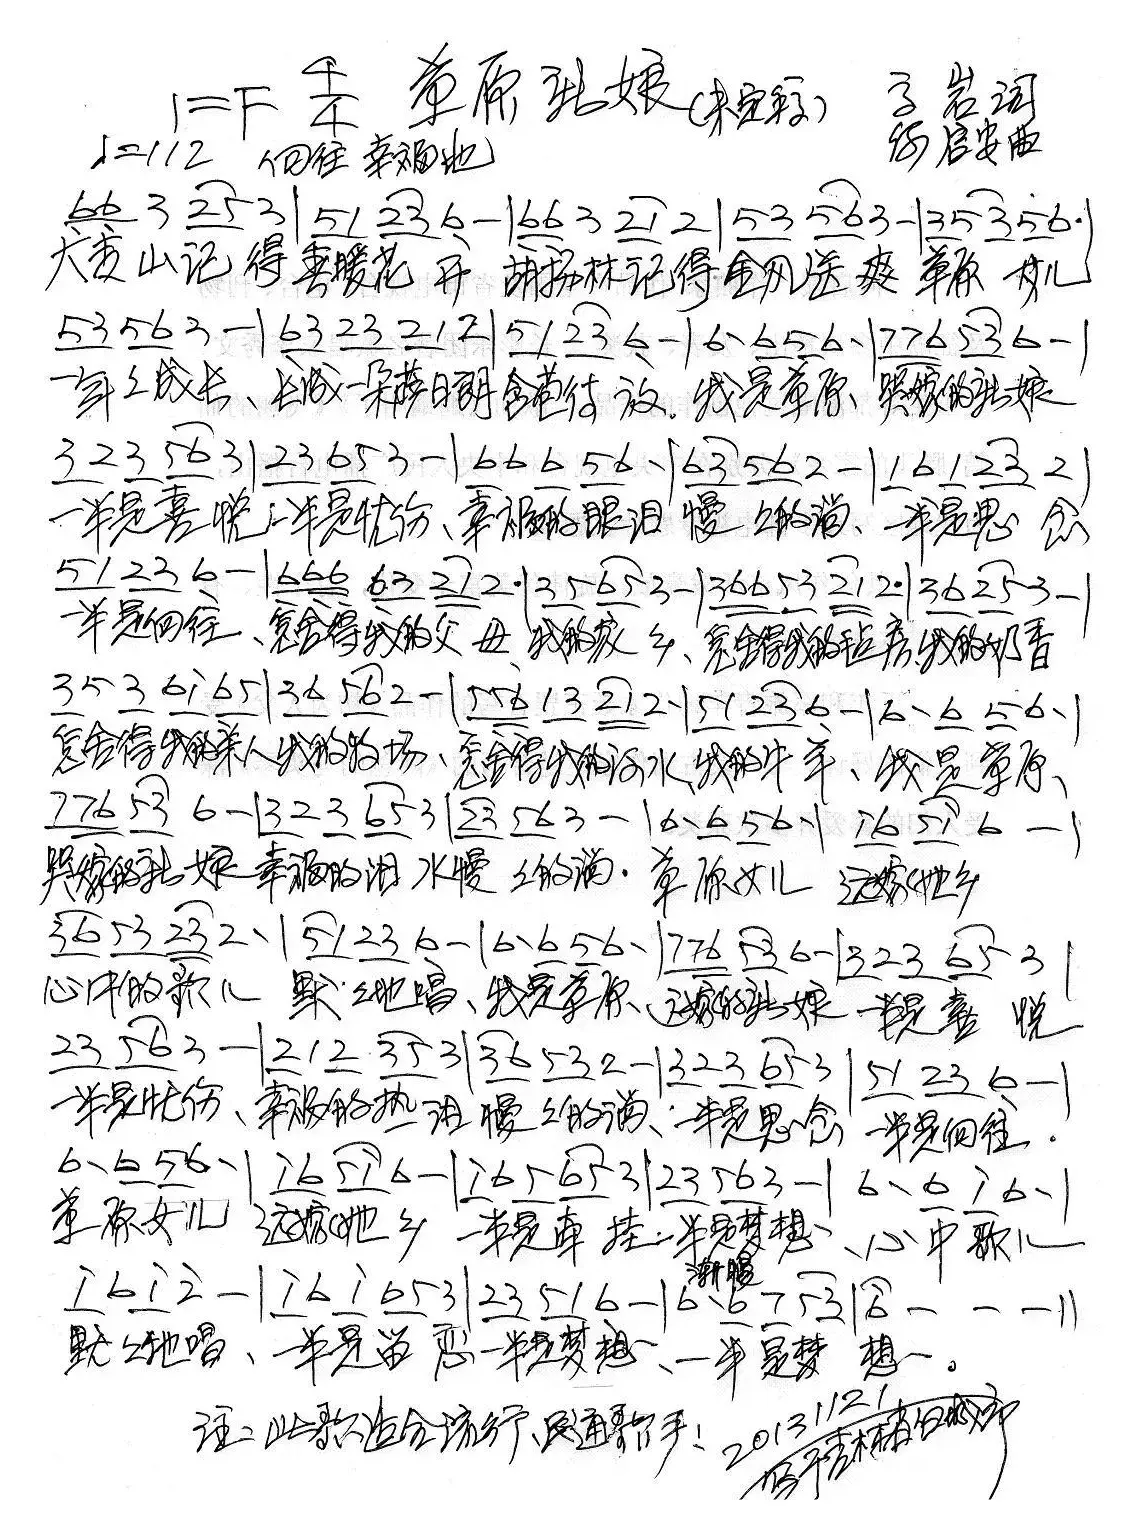 1=F 4/4 草原新娘(未定稿) 子岩词
♩=112 向往 幸福地 启安曲
66 3 253|51 236-|663 212|53 563-|35 35 6·|
大青山记得春暖花开 胡杨林记得金风送爽 草原女儿
53 563-|63 23 212|51 236-|6·656·|776 536-|
一年年成长、长成一朵萨日朗含苞待放.我是草原、哭嫁的新娘
323 563|23653-|66656·|63562-|161232|
一半是喜悦一半是忧伤、幸福的眼泪慢慢的淌、一半是思念
51236-|666 63 212·|35653-|36653 212·|36253-|
一半是向往、怎舍得我的父母我的家乡、怎舍得我的毡房我的奶香
353 6i65|36562-|556 13 212·|51236-|6·656·|
怎舍得我的亲人我的牧场、怎舍得我的河水我的牛羊、我是草原、
776 53 6-|323 653|23563-|6·656·|i65i6-|
哭嫁的新娘幸福的泪水慢慢的淌.草原女儿 远嫁他乡
3653232·|51236-|6·656·|776 536-|323 653|
心中的歌儿 默默地唱、我是草原、远嫁的新娘一半是喜悦
23563-|212 353|36532-|323653|51236-|
一半是忧伤、幸福的热泪慢慢的淌、一半是思念一半是向往.
6·656·|i65i6-|i65653|23563-|6·6i6·|
草原女儿 远嫁他乡 一半是牵挂一半是梦想、心中歌儿
渐慢
i6i2-|i6i653|23516-|6·6753|6---||
默默地唱、一半是留恋一半是梦想、一半是梦想。
注:此歌适合流行、民通歌手! 20131121
写于吉林省白城市